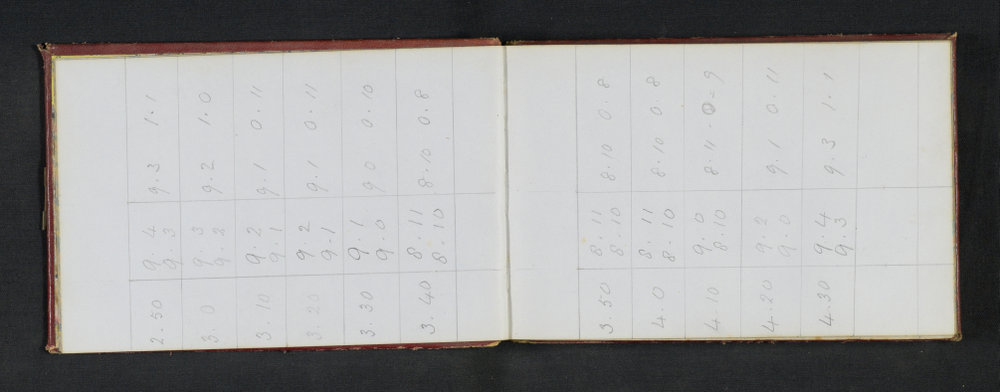 2.50 9.4 9.3 9.3 1.1
3.0 9.3 9.2 9.2 1.0
3.10 9.2 9.1 9.1 0.11
3.20 9.2 9.1 9.1 0.11
3.30 9.1 9.0 9.0 0.10
3.40 8.11 8.10 8.10 0.8
3.50 8.11 8.10 8.10 0.8
4.0 8.11 8.10 8.10 0.8
4.10 9.0 8.10 8.11 0.9
4.20 9.2 9.0 9.1 0.11
4.30 9.4 9.3 9.3 1.1